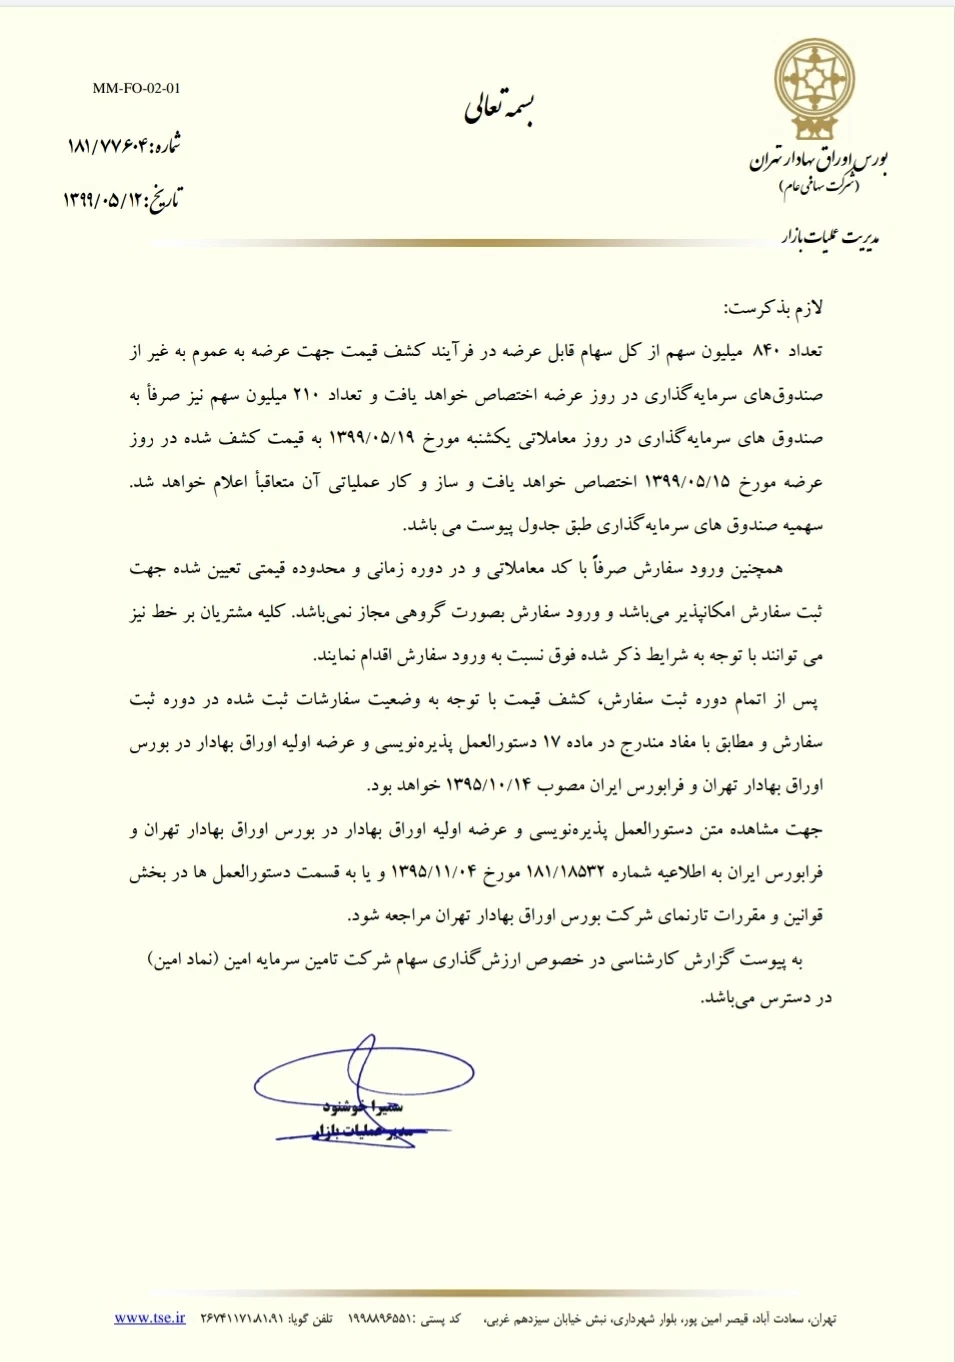 MM-FO-02-01
بسمه تعالی
شماره: ۱۸۱/۷۷۶۰۴
تاریخ: ۱۳۹۹/۰۵/۱۲
بورس اوراق بهادار تهران
(شرکت سهامی عام)
مدیریت عملیات بازار
لازم بذکرست:
تعداد ۸۴۰ میلیون سهم از کل سهام قابل عرضه در فرآیند کشف قیمت جهت عرضه به عموم به غیر از
صندوق‌های سرمایه‌گذاری در روز عرضه اختصاص خواهد یافت و تعداد ۲۱۰ میلیون سهم نیز صرفأ به
صندوق های سرمایه‌گذاری در روز معاملاتی یکشنبه مورخ ۱۳۹۹/۰۵/۱۹ به قیمت کشف شده در روز
عرضه مورخ ۱۳۹۹/۰۵/۱۵ اختصاص خواهد یافت و ساز و کار عملیاتی آن متعاقبأ اعلام خواهد شد.
سهمیه صندوق های سرمایه‌گذاری طبق جدول پیوست می باشد.
همچنین ورود سفارش صرفاً با کد معاملاتی و در دوره زمانی و محدوده قیمتی تعیین شده جهت
ثبت سفارش امکانپذیر می‌باشد و ورود سفارش بصورت گروهی مجاز نمی‌باشد. کلیه مشتریان بر خط نیز
می توانند با توجه به شرایط ذکر شده فوق نسبت به ورود سفارش اقدام نمایند.
پس از اتمام دوره ثبت سفارش، کشف قیمت با توجه به وضعیت سفارشات ثبت شده در دوره ثبت
سفارش و مطابق با مفاد مندرج در ماده ۱۷ دستورالعمل پذیره‌نویسی و عرضه اولیه اوراق بهادار در بورس
اوراق بهادار تهران و فرابورس ایران مصوب ۱۳۹۵/۱۰/۱۴ خواهد بود.
جهت مشاهده متن دستورالعمل پذیره‌نویسی و عرضه اولیه اوراق بهادار در بورس اوراق بهادار تهران و
فرابورس ایران به اطلاعیه شماره ۱۸۱/۱۸۵۳۲ مورخ ۱۳۹۵/۱۱/۰۴ و یا به قسمت دستورالعمل ها در بخش
قوانین و مقررات تارنمای شرکت بورس اوراق بهادار تهران مراجعه شود.
به پیوست گزارش کارشناسی در خصوص ارزش‌گذاری سهام شرکت تامین سرمایه امین (نماد امین)
در دسترس می‌باشد.
سمیرا خوشنود
مدیر عملیات بازار
تهران، سعادت آباد، قیصر امین پور، بلوار شهرداری، نبش خیابان سیزدهم غربی، کد پستی :۱۹۹۸۸۹۶۵۵۱ تلفن گویا: ۲۶۷۴۱۱۷۱،۸۱،۹۱ www.tse.ir